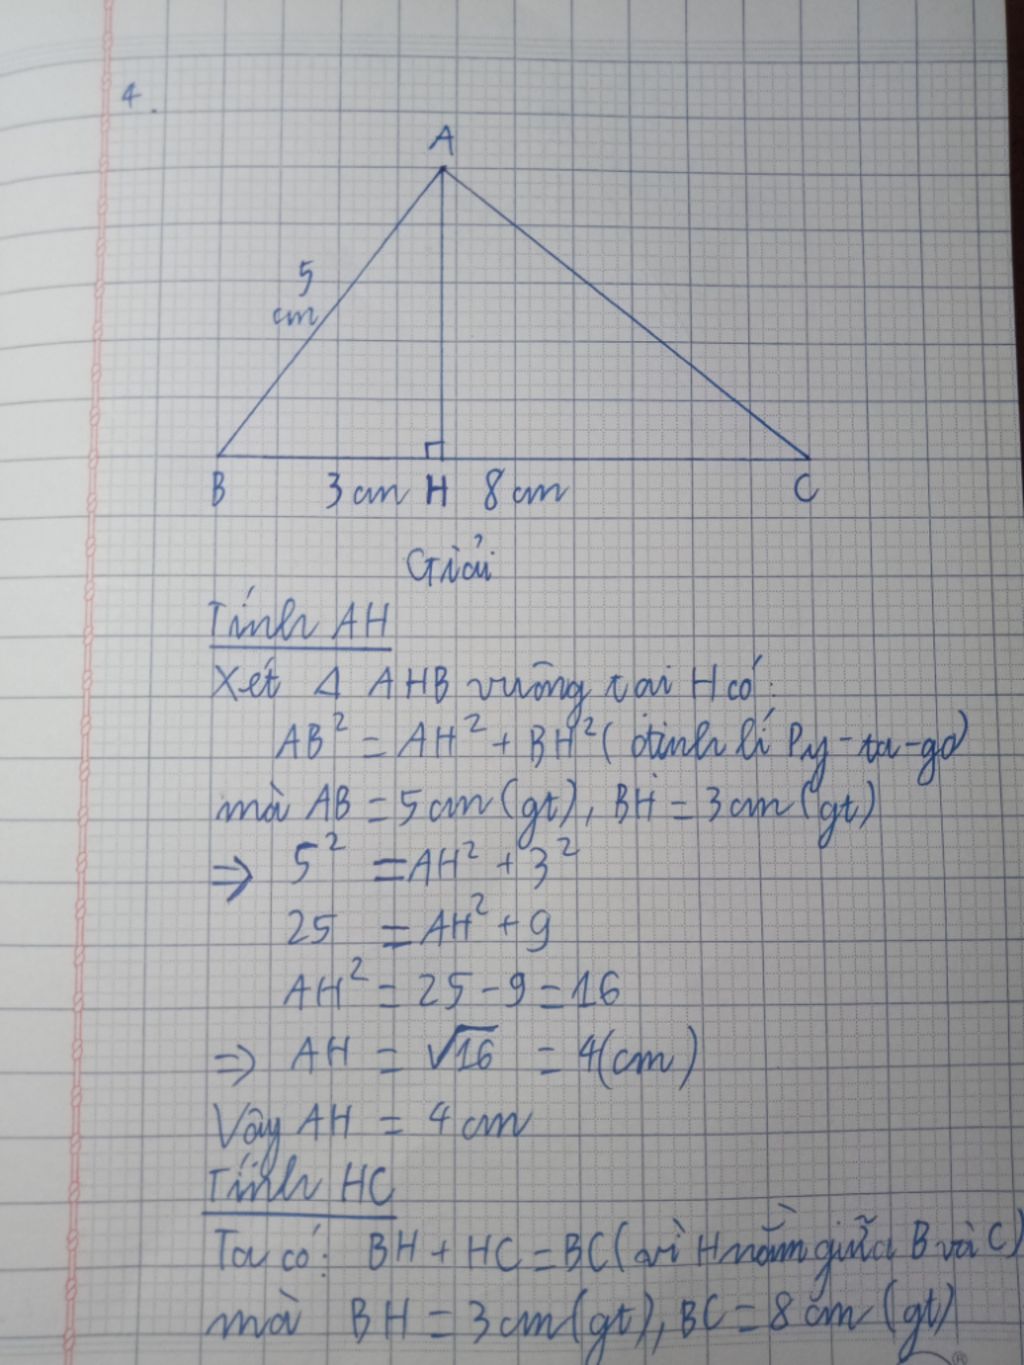 4.
A
5
cm
B 3 cm H 8 cm C
Giải
Tính AH
Xét Δ AHB vuông tại H có:
AB² = AH² + BH² (định lí Py-ta-go)
mà AB = 5 cm (gt), BH = 3 cm (gt)
⇒ 5² = AH² + 3²
25 = AH² + 9
AH² = 25 - 9 = 16
⇒ AH = √16 = 4 (cm)
Vậy AH = 4 cm
Tính HC
Ta có: BH + HC = BC (vì H nằm giữa B và C)
mà BH = 3 cm (gt), BC = 8 cm (gt)